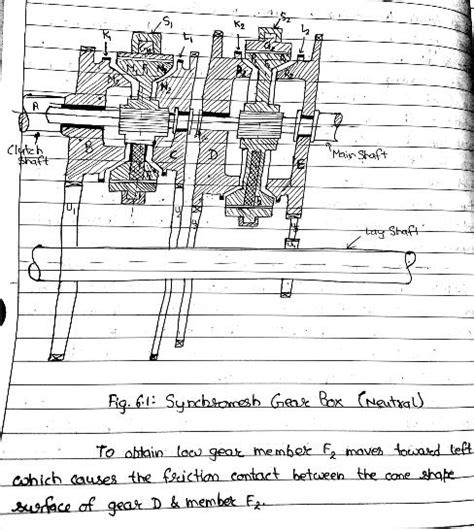 S₁
S₂
K₁
L₁
K₂
L₂
A
B
C
D
E
Clutch
shaft
Main shaft
U₁
Lay shaft
Fig. 6.1: Synchromesh Gear Box (Neutral)
To obtain low gear member F₂ moves toward left
which causes the friction contact between the cone shape
surface of gear D & member F₂.